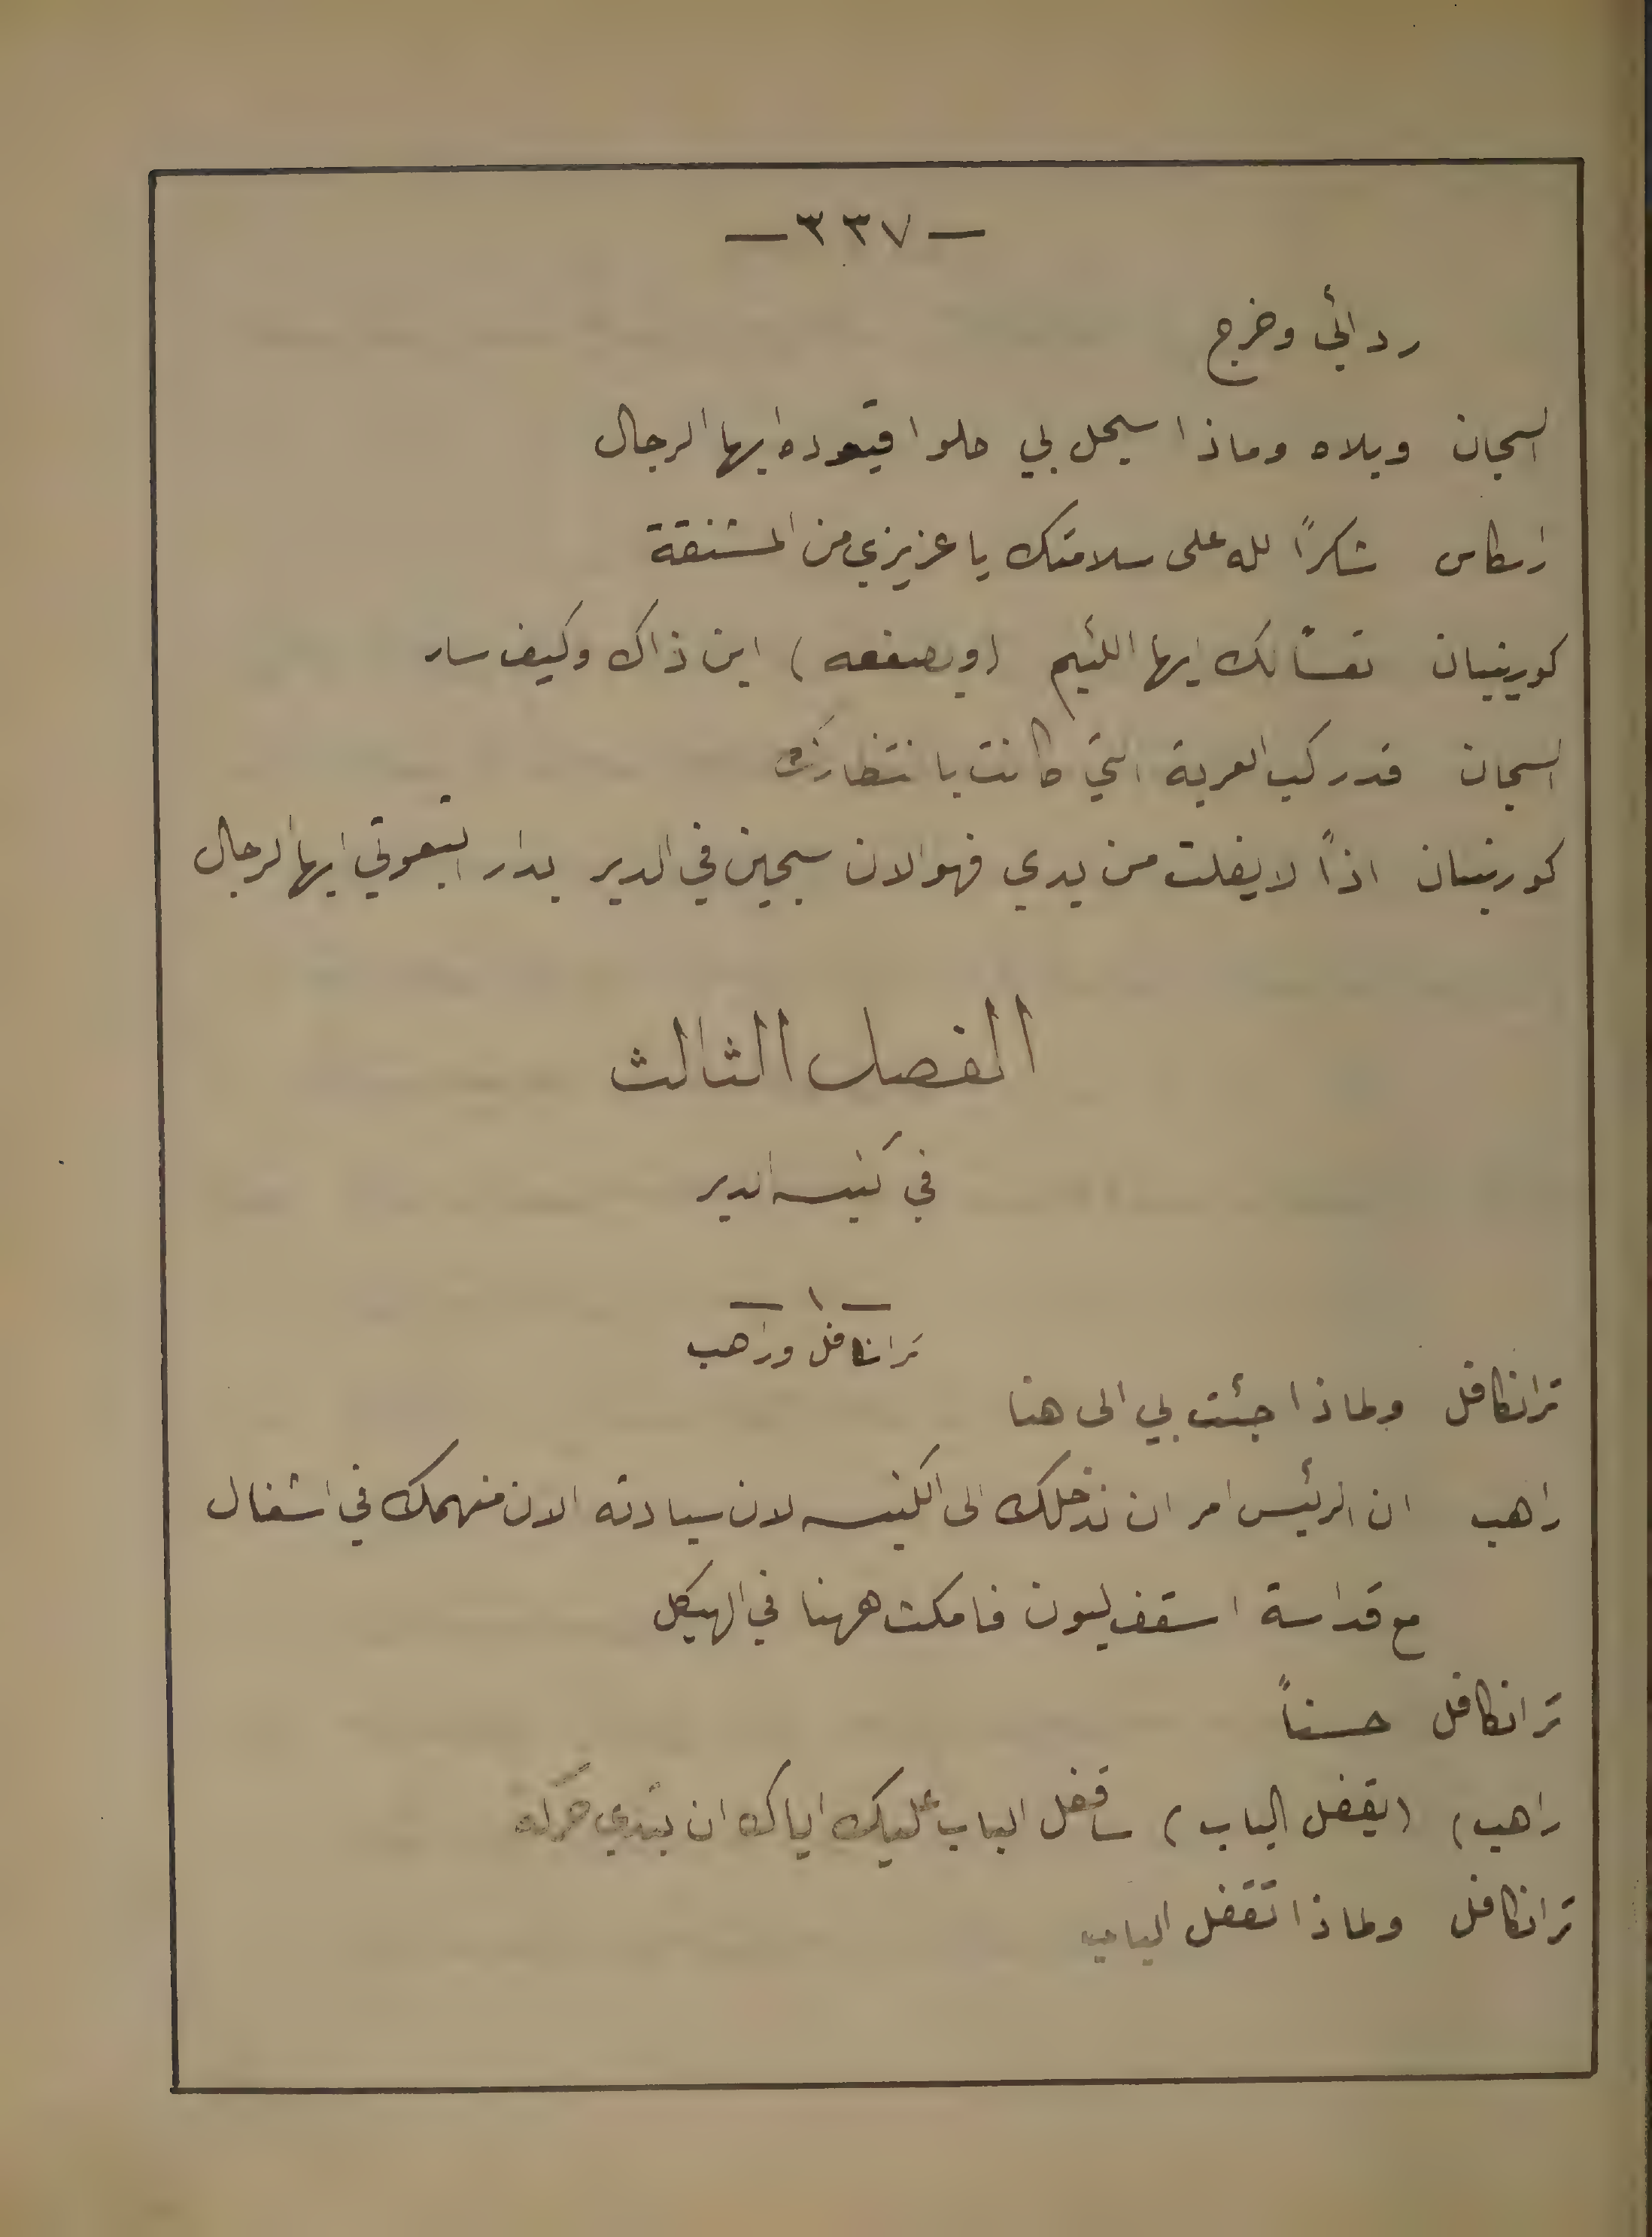 — ٣٣٧ —
ردائي وخرج
السجان ويلاه وماذا سيحل بي حلوا قيوده ايها الرجال
راسكاس شكراً لله على سلامتك يا عزيزي من المشنقة
كورينيان تعساً لك ايها اللئيم (ويصفعه) اين ذاك وكيف سار
السجان قد ركب العربة التي كانت بانتظارك
كورينيان اذاً لا يفلت من يدي فهو الان سجين في الدير بدار اتبعوني ايها الرجال
الفصل الثالث
في كنيسه الدير
— ١ —
ترانكافل وراهب
ترانكافل ولماذا جئت بي الى هنا
راهب ان الرئيس امر ان ندخلك الى الكنيسه لان سيادته الان منهمك في اشغال
مع قداسة اسقف ليون فامكث ههنا في الهيكل
ترانكافل حسناً
راهب) (يقفل الباب) ساقفل الباب عليك اياك ان تبدي حركه
ترانكافل ولماذا تقفل الباب